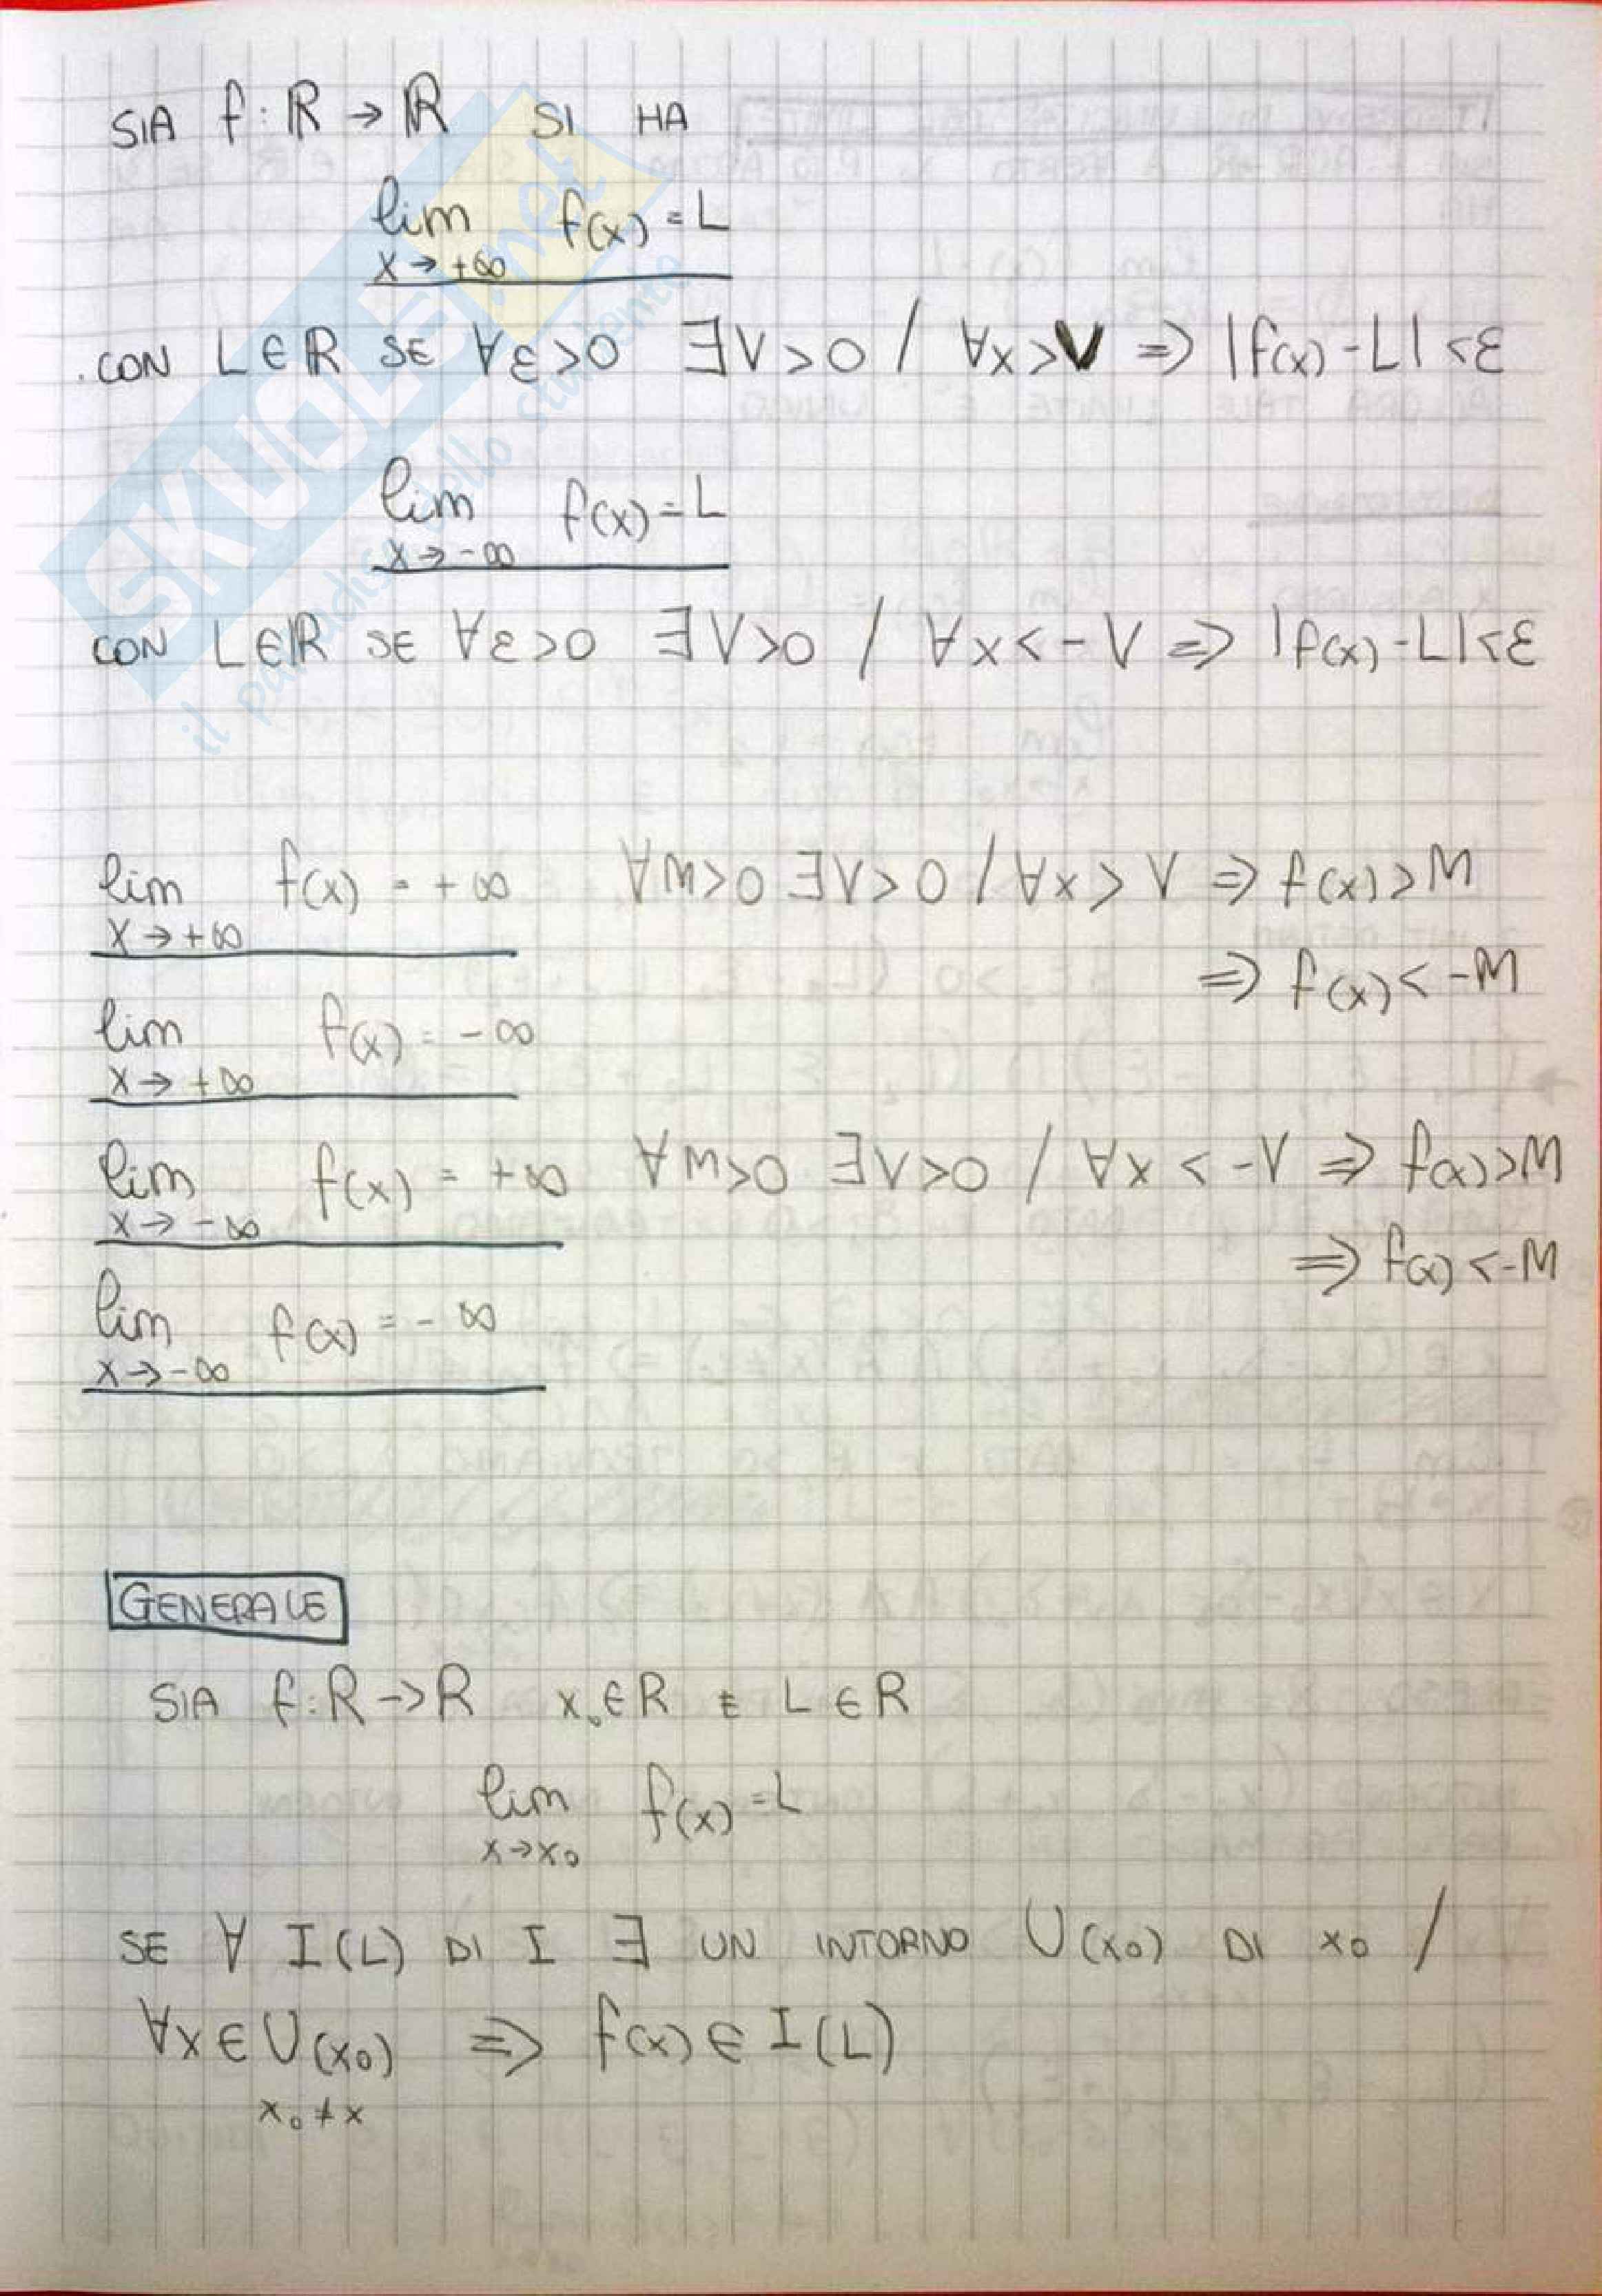 SIA f: ℝ → ℝ SI HA
lim f(x) = L
x → +∞
CON L∈ℝ SE ∀ε>0 ∃V>0 / ∀x>V ⇒ |f(x)-L|<ε
lim f(x) = L
x → -∞
CON L∈ℝ SE ∀ε>0 ∃V>0 / ∀x<-V ⇒ |f(x)-L|<ε
lim f(x) = +∞ ∀M>0 ∃V>0 / ∀x>V ⇒ f(x)>M
x → +∞
⇒ f(x)<-M
lim f(x) = -∞
x → +∞
lim f(x) = +∞ ∀M>0 ∃V>0 / ∀x<-V ⇒ f(x)>M
x → -∞
⇒ f(x)<-M
lim f(x) = -∞
x → -∞
GENERALE
SIA f: R → R x₀∈R E L∈R
lim f(x) = L
x → x₀
SE ∀ I(L) DI I ∃ UN INTORNO U(x₀) DI x₀ /
∀x∈U(x₀) ⇒ f(x)∈I(L)
x₀≠x
SKUOLA.net
il paradiso dello studente